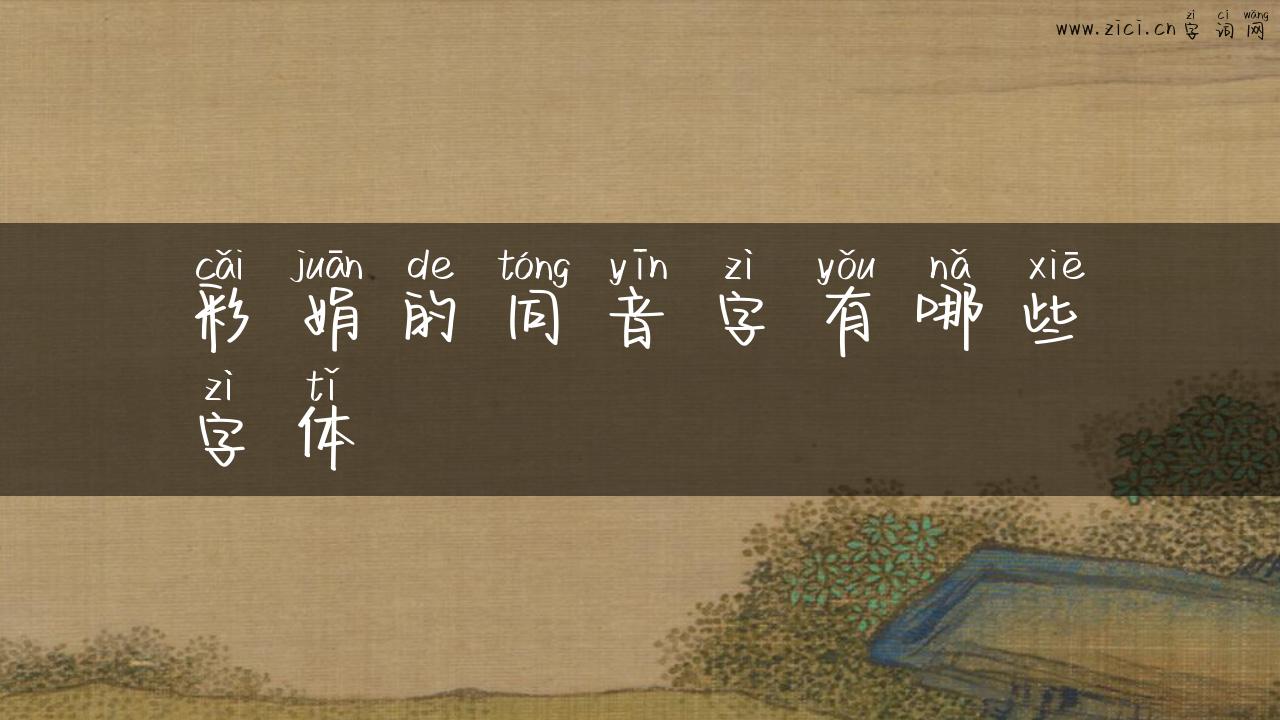 zì cí wǎng
www.zici.cn 字词网
cǎi juān de tóng yīn zì yǒu nǎ xiē
彩娟的同音字有哪些
zì tǐ
字体